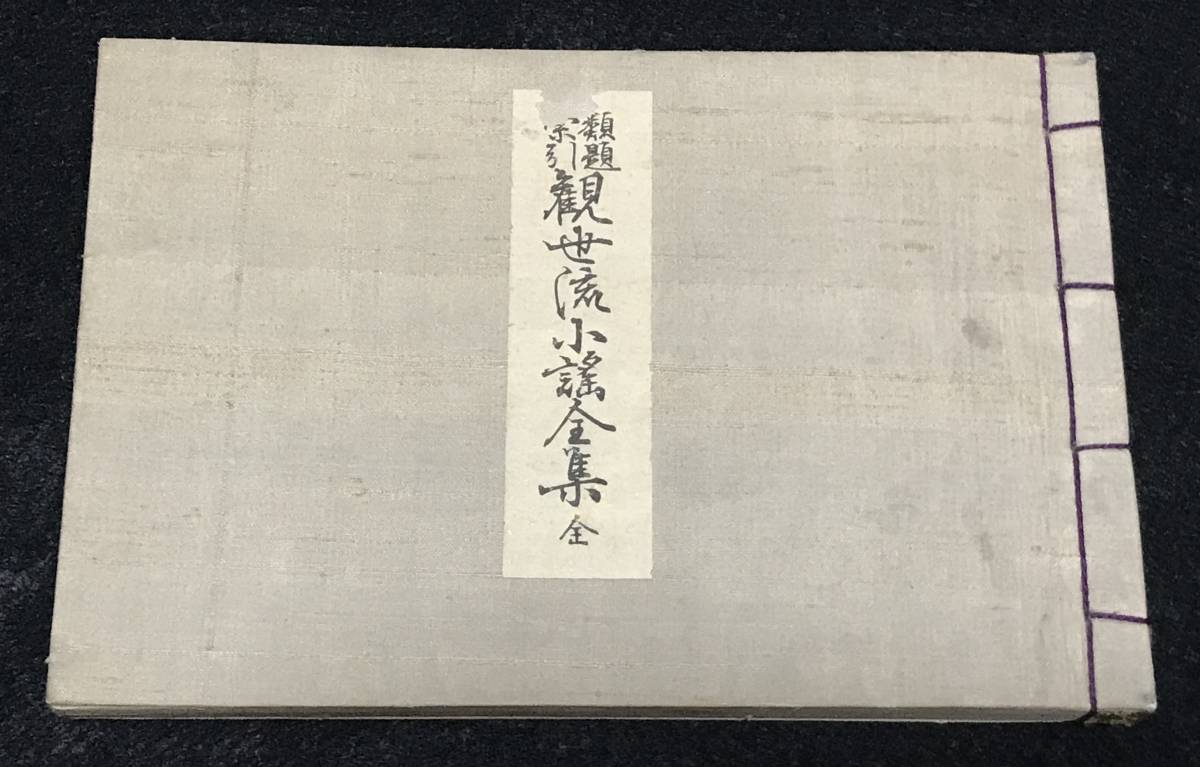 類題
索引
観世流小謡全集 全